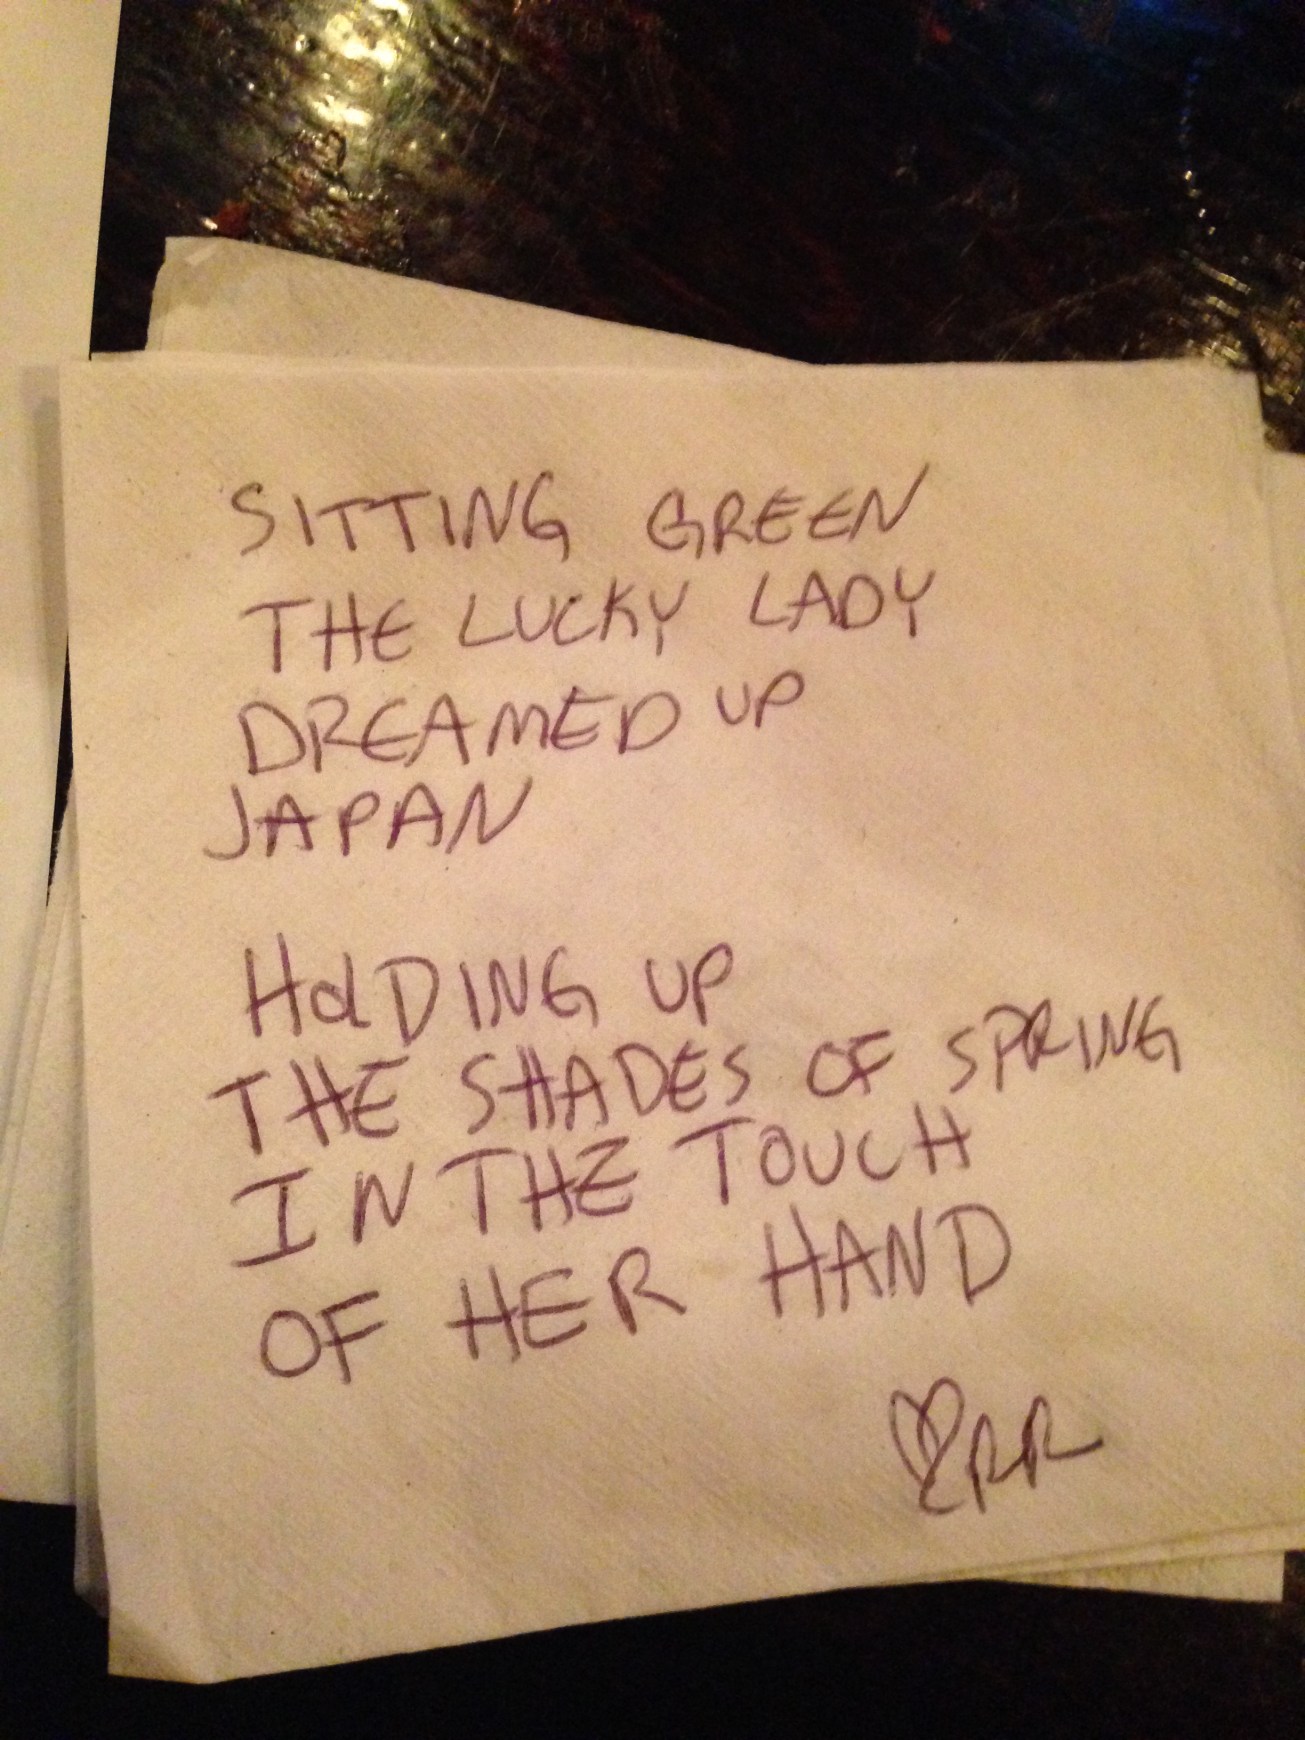 SITTING GREEN
THE LUCKY LADY
DREAMED UP
JAPAN
HOLDING UP
THE SHADES OF SPRING
IN THE TOUCH
OF HER HAND
RR